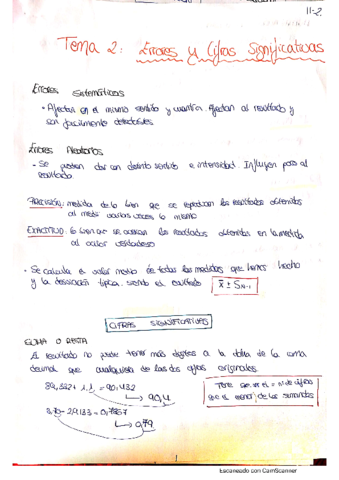 11-2
Tema 2: Errores y Cifras Significativas
Errores Sistemáticos
· Afectan en el mismo sentido y cuantía. Afectan al resultado y
son fácilmente detectables
Errores Aleatorios
- Se pueden dar con distinto sentido e intensidad. Influyen poco al
resultado
PRECISIÓN: medida de lo bien que se reproducen los resultados obtenidos
al medir varias veces lo mismo
EXACTITUD: lo bien que se acercan los resultados obtenidos en la medida
al valor verdadero
· Se calcula el valor medio de todas las medidas que hemos hecho
y la desviación típica siendo el resultado x̄ ± Sn-1
CIFRAS SIGNIFICATIVAS
SUMA O RESTA
El resultado no puede tener más dígitos a la dcha de la coma
decimal que cualquiera de las dos cifras originales.
89,332 + 1,1 = 90,432
→ 90,4
3,70 - 2,9133 = 0,7867
→ 0,79
1
Escaneado con CamScanner